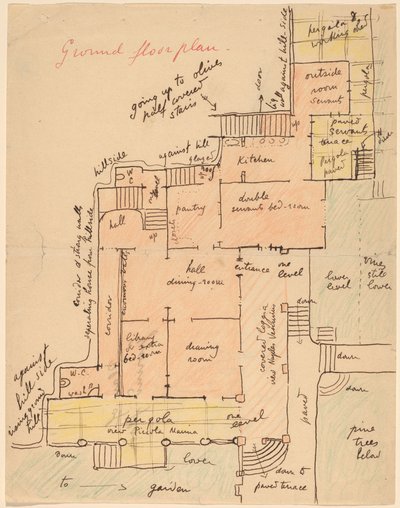 Ground floor plan.
pergola &
working shed
outside
room
servants
pergola
going up to olives
half covered
stairs
door
against hill side
up
paved
servants
terrace
pergola
paved
down
hillside
against hill
glazed
roof
Kitchen
W
C
pantry
double
servants bed-room
hall
up
corridor & strong wall
separating house from hillside
corridor
hall
dining-room
entrance one
level
library
or extra
bed-room
drawing
room
covered loggia
view Naples Vesuvius
down
lower
level
one
still
lower
down
against
hill side
going
W.C.
wash
paved
down
pergola
one
level
view Piccola Marina
pine
trees
below
down
lower
down to
paved terrace
to → garden